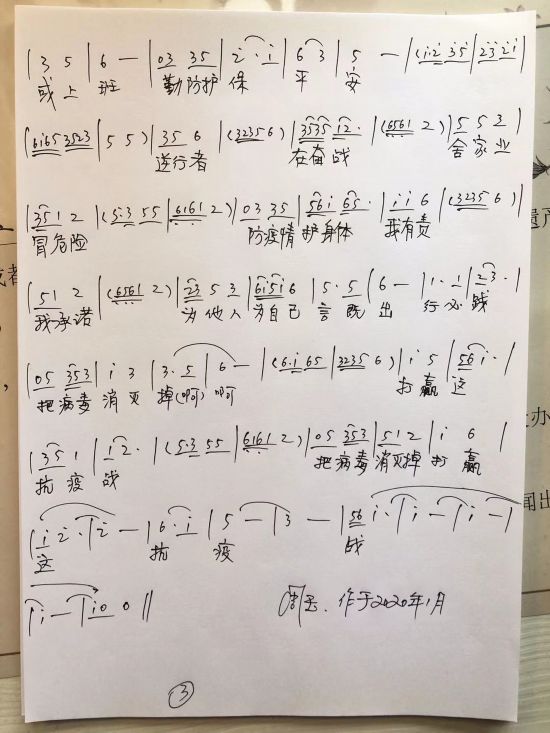 |3 5|6 —|03 35|2̇·1̇|6 3|5 —|(1̇·2̇ 3̇5̇|2̇3̇ 2̇1̇|
或上 班 勤防护 保 平 安
|6165 3523|5 5)|35 6|(32356)|3535 1̇2̇·|(6561 2)|5 5 3|
逆行者 在奋战 舍家业
|351 2|(5·3 55|6161 2)|03 35|561̇ 65·|1̇ 1̇ 6|(3235 6)|
冒危险 防疫情 护身体 我有责
|51 2|(6561 2)|23 5 3|61̇51̇6|5·5|6 —|1̇·1̇|2̇3̇·|
我承诺 为他人 为自己 言 既 出 行必 践
|05 353|1̇ 3|3·5|6 —|(6·1̇ 65|3235 6)|1̇ 5|561̇·|
把病毒 消灭 掉(啊) 啊 打 赢 这
|351|12·|(5·3 55|6161 2)|05 353|512|1̇ 6|
抗 疫 战 把病毒 消灭掉 打 赢
|1̇ 2̇·|2̇ —|6·1̇|5 —|3 —|56 1̇·|1̇ —|1̇ —|
这 抗 疫 战
|1̇ —|1̇0 0‖
作于2020年1月
③